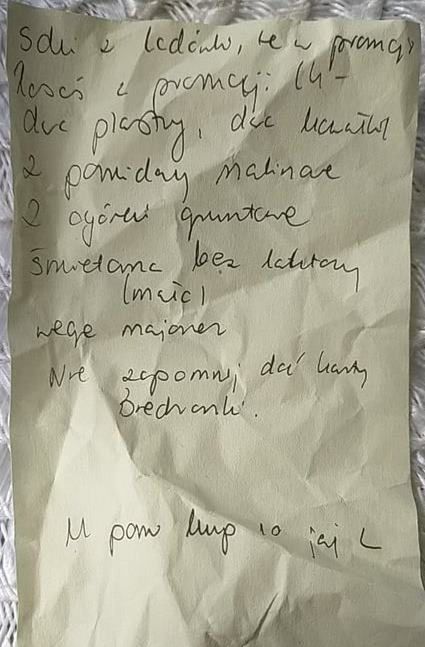 Soki z lodówki, te w promocji
Łosoś z promocji:
dwa plastry, dwa kawałki
2 pomidory malinowe
2 ogórki gruntowe
śmietana bez laktozy
(mała)
wege majonez
Nie zapomnij dać karty
Biedronki.
U pani kup 10 jaj L